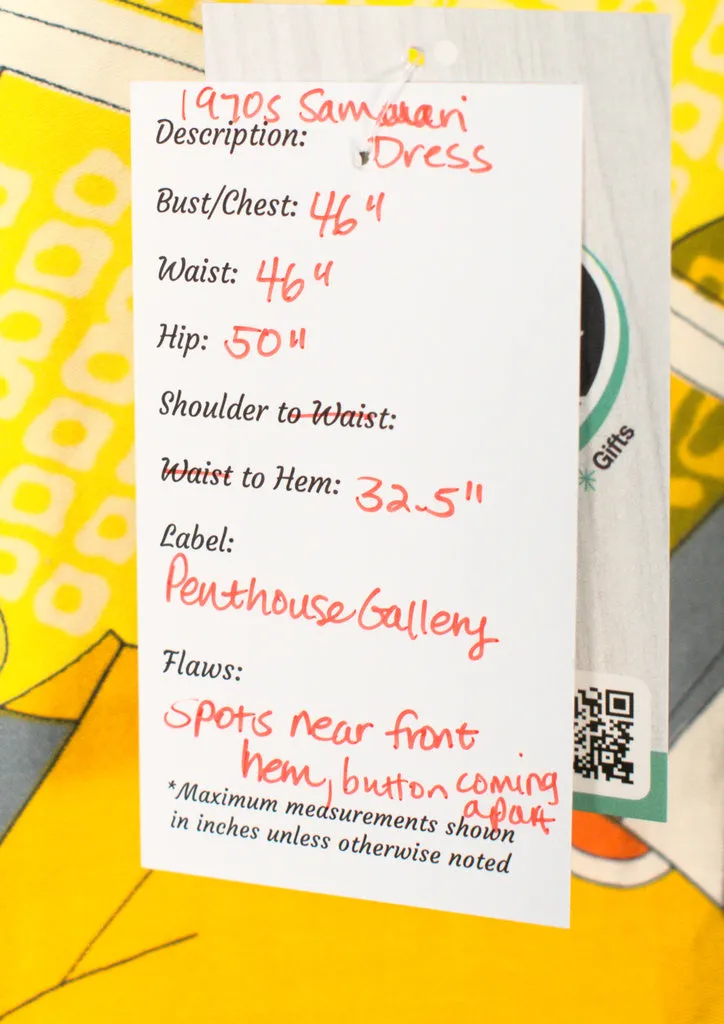 1970s Samurai
Description: Dress
Bust/Chest: 46"
Waist: 46"
Hip: 50"
Shoulder to Waist:
Waist to Hem: 32.5"
Label:
Penthouse Gallery
Flaws:
spots near front
hem, button coming
apart
*Maximum measurements shown
in inches unless otherwise noted
Gifts